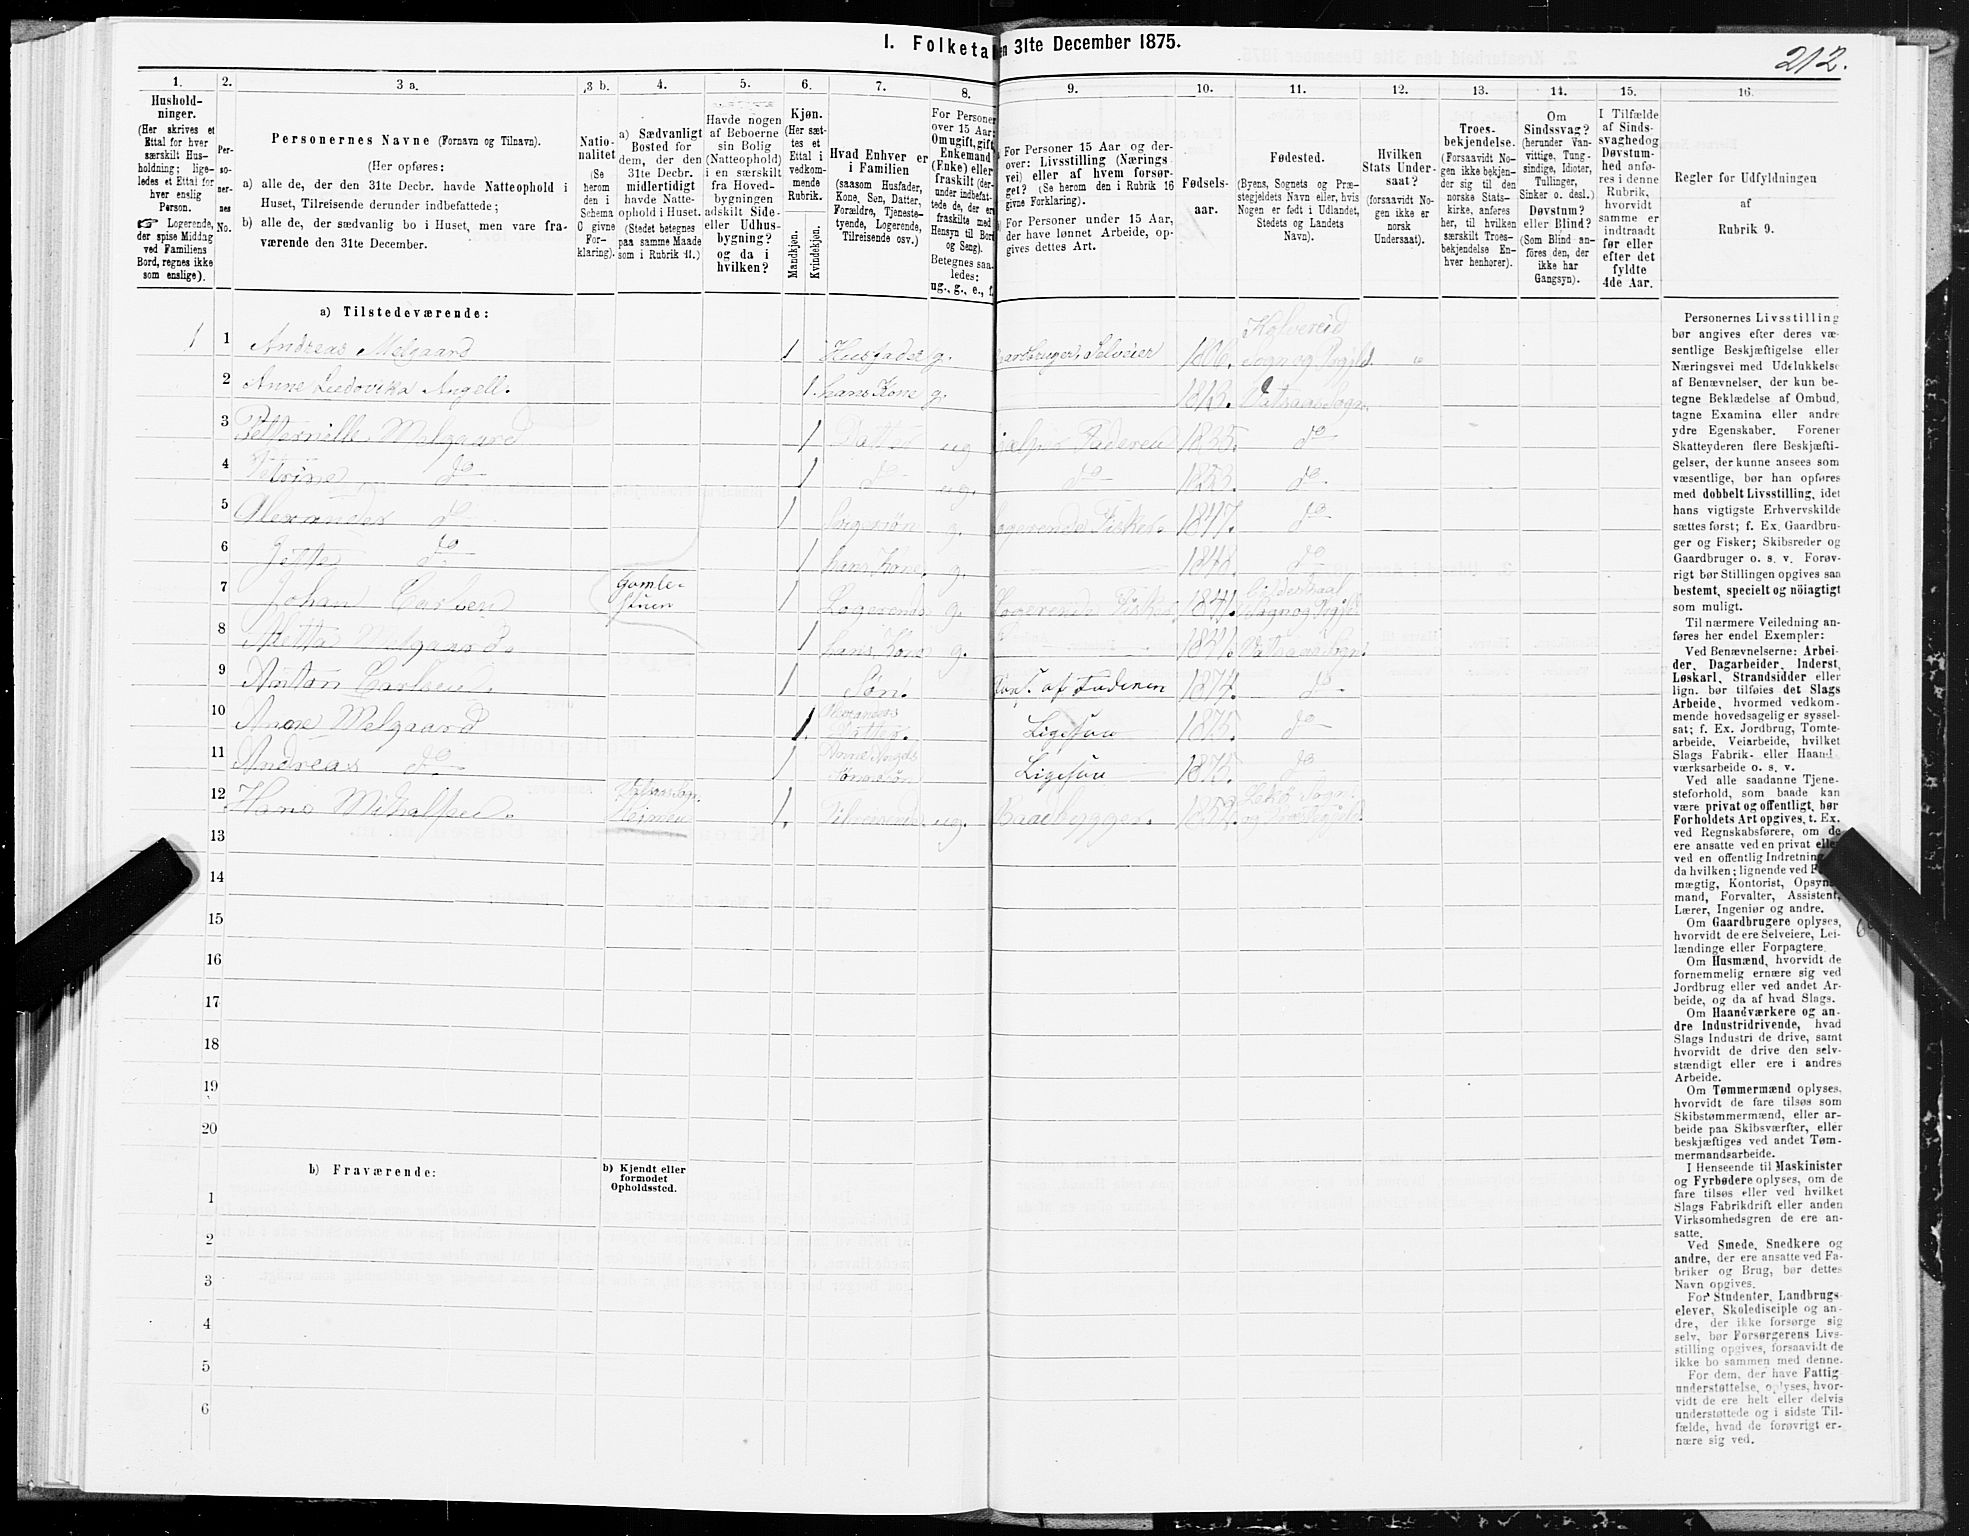 I. Folketa en 31te December 1875.
212.
1. 2. 3 a. 3 b. 4. 5. 6. 7. 8. 9. 10. 11. 12. 13. 14. 15. 16.
Hushold-
ninger.
(Her skrives et
Ettal for hver
særskilt Hus-
holdning; lige-
ledes et Ettal for
hver enslig
Person.
☞ Logerende,
der spise Middag
ved Familiens
Bord, regnes ikke
som enslige).
Per-
so-
ner-
nes
No.
Personernes Navne (Fornavn og Tilnavn).
(Her opføres:
a) alle de, der den 31te Decbr. havde Natteophold i
Huset, Tilreisende derunder indbefattede;
b) alle de, der sædvanlig bo i Huset, men vare fra-
værende den 31te December.
Natio-
nalitet
(Se
herom
den i
Schema
C givne
For-
klaring).
a) Sædvanligt
Bosted for
dem, der den
31te Decbr.
midlertidigt
havde Natte-
ophold i Huset.
(Stedet betegnes
paa samme Maade
som i Rubrik 11.)
Havde nogen
af Beboerne
sin Bolig
(Natteophold)
i en særskilt
fra Hoved-
bygningen
adskilt Side-
eller Udhus-
bygning?
og da i
hvilken?
Kjøn.
(Her sæt-
tes et
Ettal i
vedkom-
mende
Rubrik.
Mandkjøn.
Kvindekjøn.
Hvad Enhver er
i Familien
(saasom Husfader,
Kone, Søn, Datter,
Forældre, Tjeneste-
tyende, Logerende,
Tilreisende osv.)
For Personer
over 15 Aar:
Om ugift, gift,
Enkemand
(Enke) eller
fraskilt (der-
under indbefat-
tede de, der ere
fraskilte med
Hensyn til Bord
og Seng).
Betegnes saa-
ledes:
ug., g., e., f.
For Personer 15 Aar og der-
over: Livsstilling (Nærings
vei) eller af hvem forsør-
get? (Se herom den i Rubrik 16
givne Forklaring).
For Personer under 15 Aar,
der have lønnet Arbeide, op-
gives dettes Art.
Fødsels-
aar.
Fødested.
(Byens, Sognets og Præ-
stegjeldets Navn eller, hvis
Nogen er født i Udlandet,
Stedets og Landets
Navn).
Hvilken
Stats Under-
saat?
(forsaavidt No-
gen ikke er
norsk
Undersaat).
Troes-
bekjendelse.
(Forsaavidt No-
gen ikke bekjen-
der sig til den
norske Stats-
kirke, anføres
her, til hvilken
særskilt Troes-
bekjendelse En-
hver henhører).
Om
Sindssvag?
(herunder Van-
vittige, Tung-
sindige, Idioter,
Tullinger,
Sinker o. desl.)
Døvstum?
eller Blind?
(Som Blind an-
føres den, der
ikke har
Gangsyn).
I Tilfælde
af Sinds-
svaghed og
Døvstum-
hed anfø-
res i denne
Rubrik,
hvorvidt
samme er
indtraadt
før eller
efter det
fyldte
4de Aar.
Regler for Udfyldningen
af
Rubrik 9.
a) Tilstedeværende:
1 1 Andreas Melgaard 1 Husfader g. Gaardbruger, Selveier 1806. Kolvereid Sogn og Prgjld.
2 Anne Ludovika Angell. 1 hans Kone g. 1813. Vatsaas Sogn.
3 Petternille Melgaard 1 Datter ug Faderen 1835. do
4 Petrine do 1 do ug. do 1853. do
5 Alexander do 1 søn g. Logerende Fisker. 1847. do
6 Jette do 1 hans Kone. g. 1848. do
7 Johan Carlsen Gamle-
stuen 1 Logerende g. Logerende Fisker 1841. Sogn og Prgjld
8 Mette Melgaard. 1 hans Kone g. 1841. Vatsaas Sogn.
9 Anton Carlsen. 1 Søn. af Faderen 1874. do
10 Anne Melgaard 1. Alexanders
Datter. Ligesaa 1875. do
11 Andreas do 1 Sønnesøn Ligesaa 1875. do
12 Hans Mikalsen. Vatsaas Sogn.
Heimen 1. Tilreisende ug. Baadbygger. Leka Sogn
13
14
15
16
17
18
19
20
b) Fraværende:
b) Kjendt eller
formodet
Opholdssted.
1
2
3
4
5
6
Personernes Livsstilling
bør angives efter deres væ-
sentlige Beskjæftigelse eller
Næringsvei med Udelukkelse
af Benævnelser, der kun be-
tegne Beklædelse af Ombud,
tagne Examina eller andre
ydre Egenskaber. Forener
Skatteyderen flere Beskjæfti-
gelser, der kunne ansees som
væsentlige, bør han opføres
med dobbelt Livsstilling, idet
hans vigtigste Erhvervskilde
sættes først; f. Ex. Gaardbru-
ger og Fisker; Skibsreder og
Gaardbruger o. s. v. Forøv-
rigt bør Stillingen opgives saa
bestemt, specielt og nöiagtigt
som muligt.
Til nærmere Veiledning an-
føres her endel Exempler:
Ved Benævnelserne: Arbei-
der, Dagarbeider, Inderst,
Løskarl, Strandsidder eller
lign. bør tilføies det Slags
Arbeide, hvormed vedkom-
mende hovedsagelig er syssel-
sat; f. Ex. Jordbrug, Tomte-
arbeide, Veiarbeide, hvilket
Slags Fabrik- eller Haand-
værksarbeide o. s. v.
Ved alle saadanne Tjene-
steforhold, som baade kan
være privat og offentligt, bør
Forholdets Art opgives, t. Ex.
ved Regnskabsførere, om de
ere ansatte ved en privat eller
ved en offentlig Indretning
da hvilken; lignende ved F
mægtig, Kontorist, Opsyns-
mand, Forvalter, Assistent,
Lærer, Ingeniør og andre.
Om Gaardbrugere oplyses,
hvorvidt de ere Selveiere, Lei-
lændinge eller Forpagtere.
Om Husmænd, hvorvidt de
fornemmelig ernære sig ved
Jordbrug eller ved andet Ar-
beide, og da af hvad Slags.
Om Haandværkere og an-
dre Industridrivende, hvad
Slags Industri de drive, samt
hvorvidt de drive den selv-
stændigt eller ere i andres
Arbeide.
Om Tømmermænd oplyses,
hvorvidt de fare tilsøs som
Skibstømmermænd, eller ar-
beide paa Skibsværfter, eller
beskjæftiges ved andet Tøm-
mermandsarbeide.
I Henseende til Maskinister
og Fyrbødere oplyses, om de
fare tilsøs eller ved hvilket
Slags Fabrikdrift eller anden
Virksomhedsgren de ere an-
satte.
Ved Smede, Snedkere og
andre, der ere ansatte ved Fa-
briker og Brug, bør dettes
Navn opgives.
For Studenter, Landbrugs-
elever, Skoledisciple og an-
dre, der ikke forsørge sig
selv, bør Forsørgerens Livs-
stilling opgives, forsaavidt de
ikke bo sammen med denne.
For dem, der have Fattig-
understøttelse, oplyses, hvor-
vidt de ere helt eller delvis
understøttede og i sidste Til-
fælde, hvad de forøvrigt er-
nære sig ved.